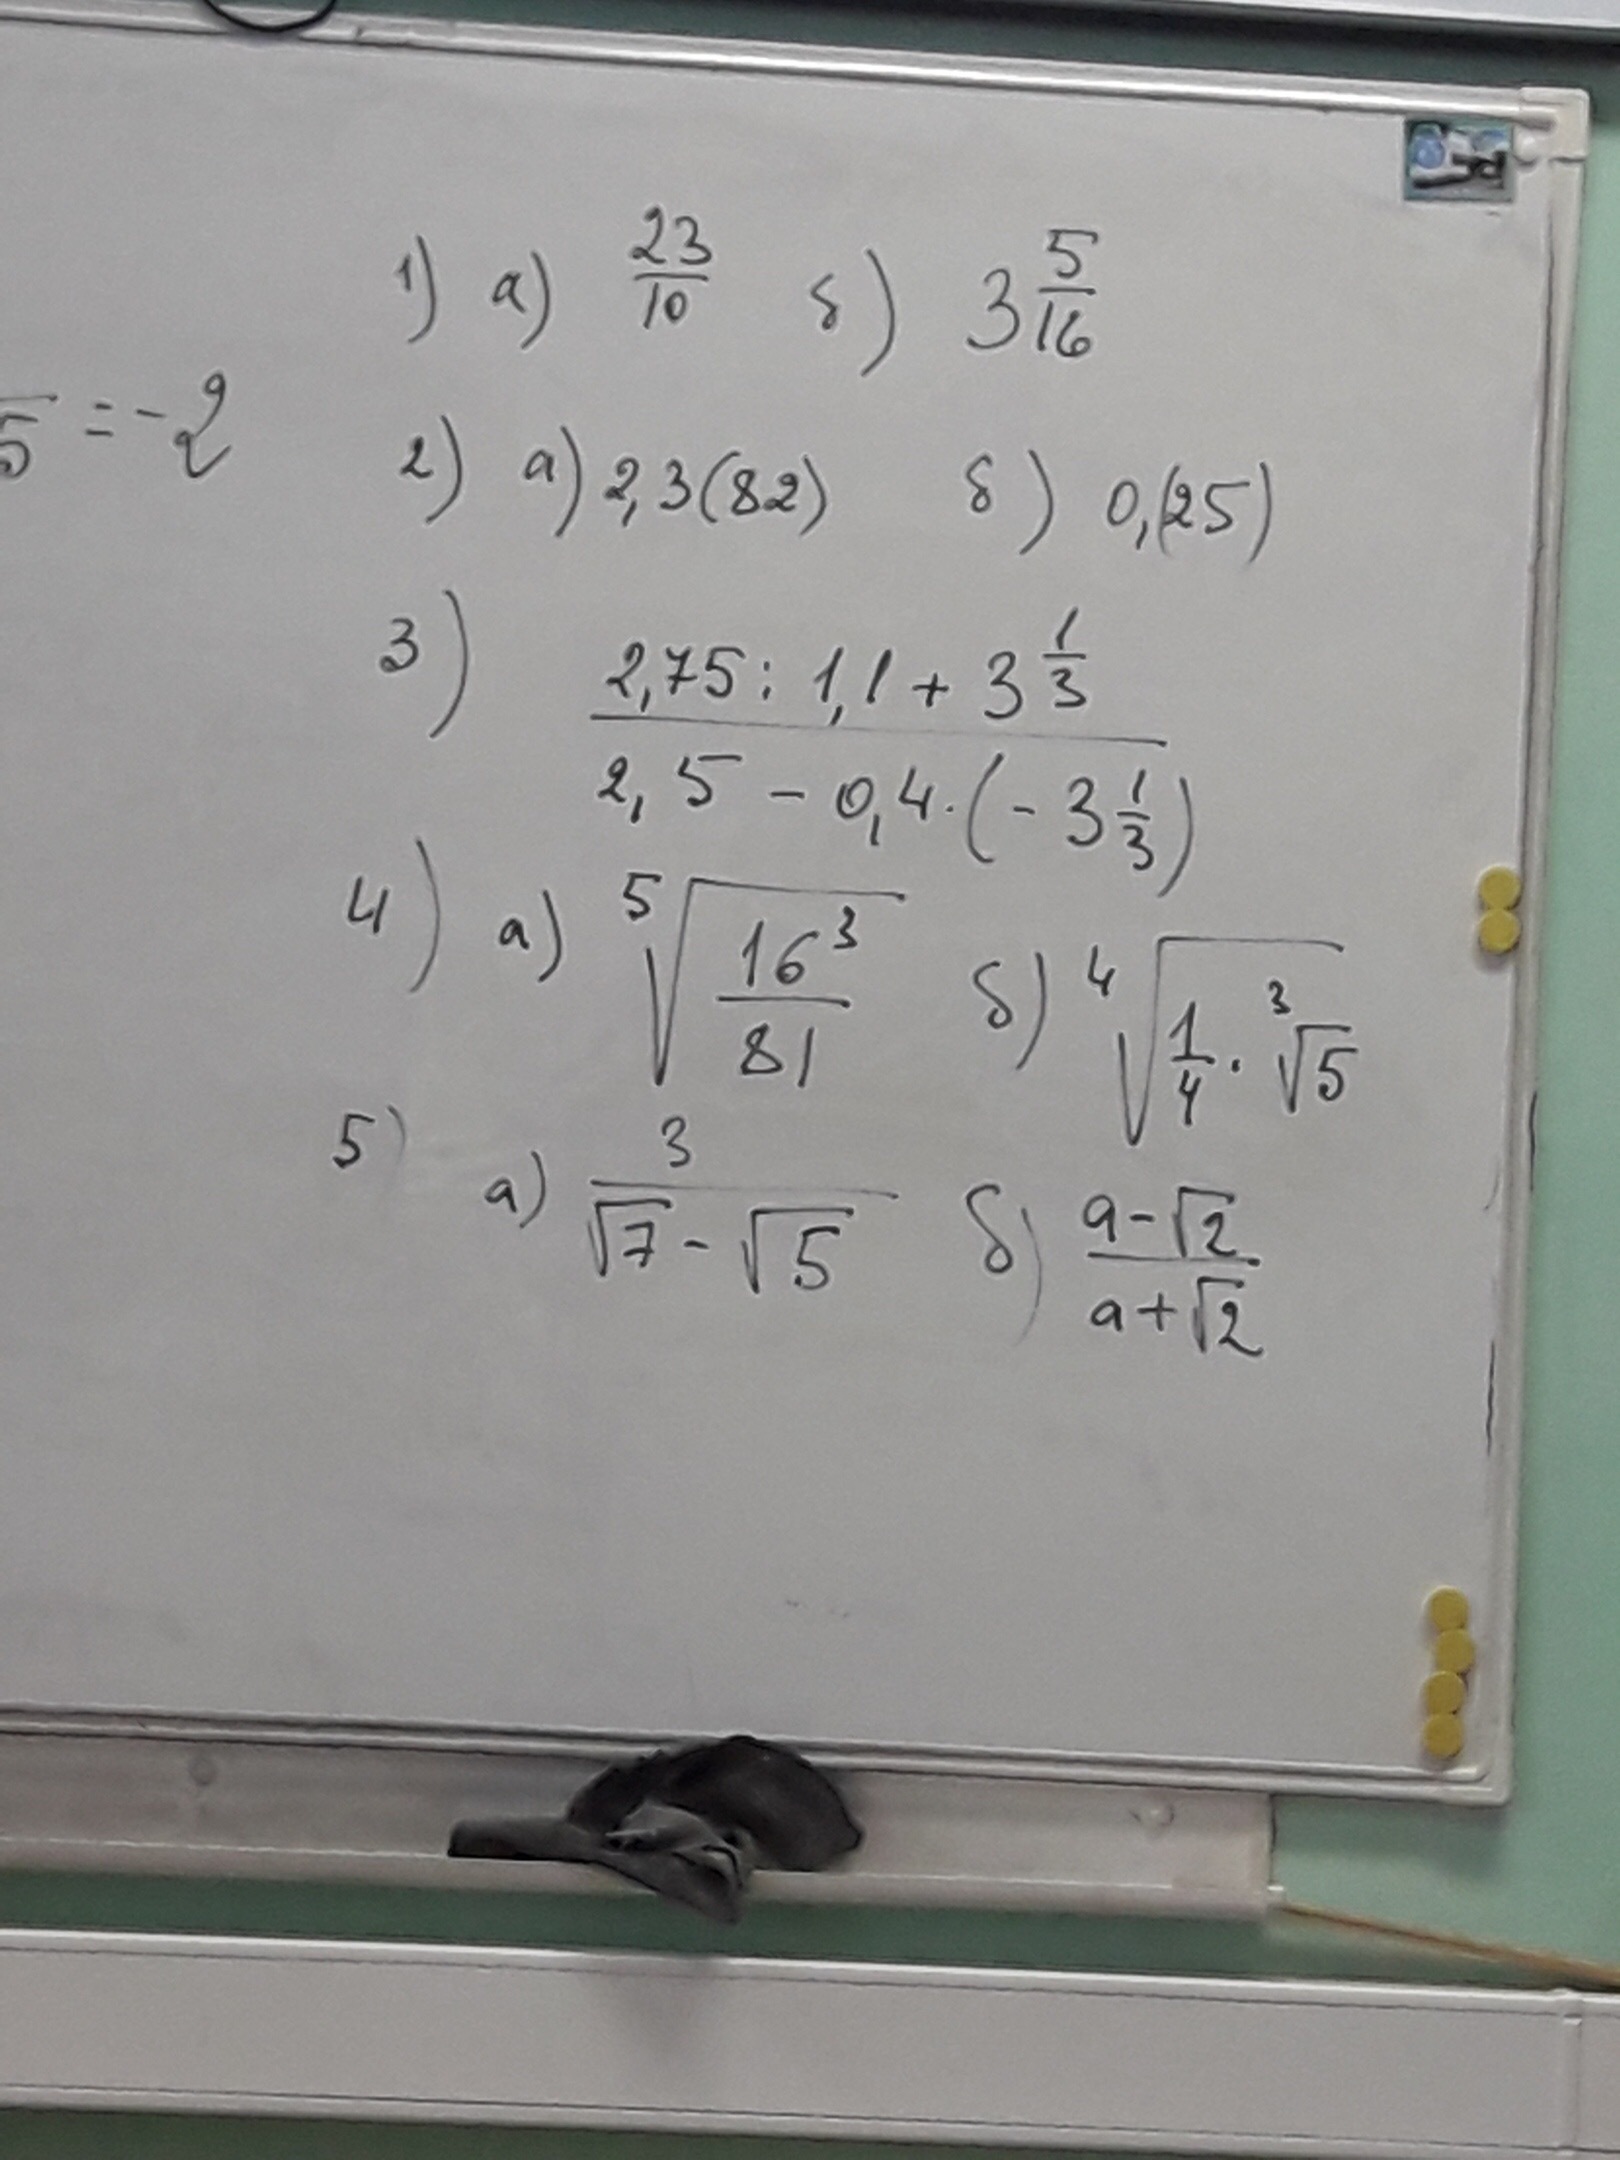 1) а) 23/10 б) 3 5/16
5 = -2
2) а) 2,3(82) б) 0,(25)
3) (2,75 : 1,1 + 3 1/3) / (2,5 - 0,4 · (-3 1/3))
4) а) ⁵√(16³/81) б) ⁴√(1/4 · ³√5)
5) а) 3/(√7 - √5) б) (a-√2)/(a+√2)